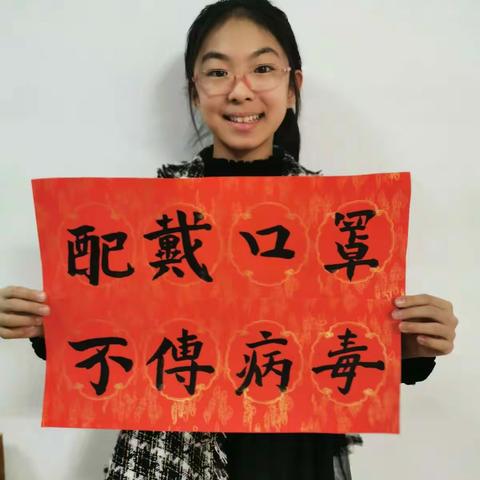 配戴口罩
不傳病毒